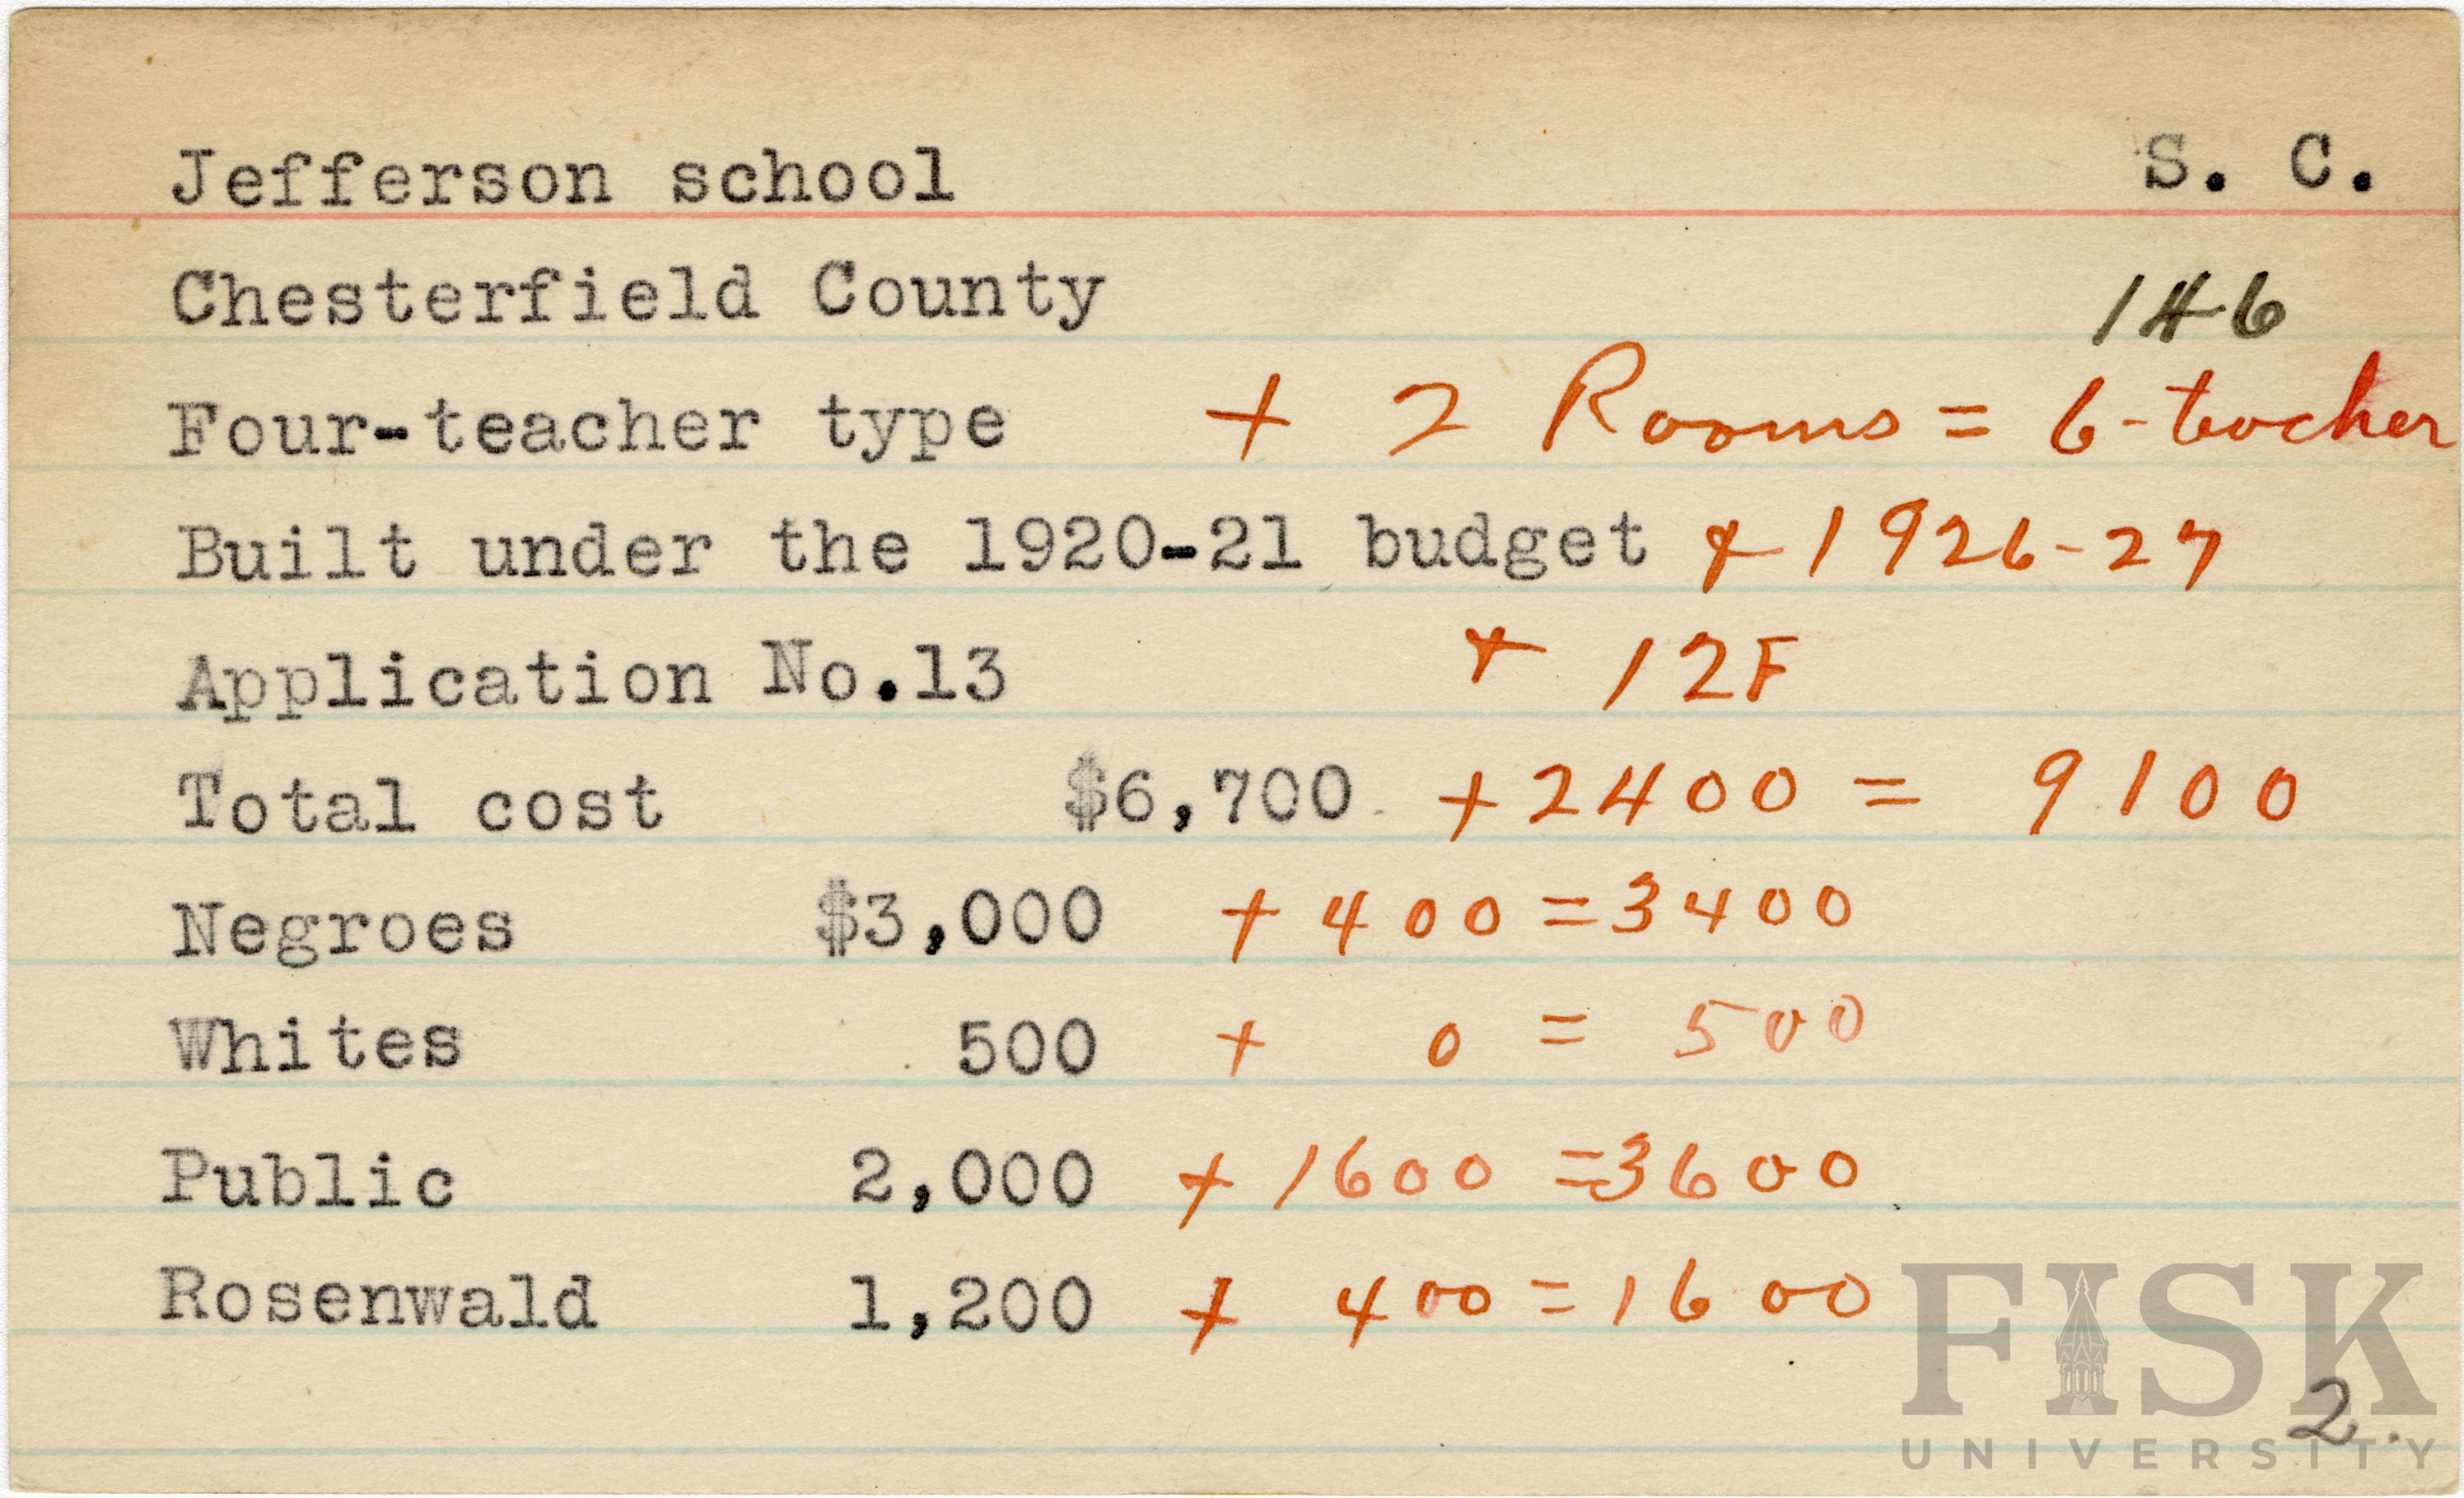 Jefferson school S. C.
Chesterfield County 146
Four-teacher type + 2 Rooms = 6-teacher
Built under the 1920-21 budget + 1926-27
Application No.13 + 12F
Total cost $6,700 + 2400 = 9100
Negroes $3,000 + 400 = 3400
Whites 500 + 0 = 500
Public 2,000 + 1600 = 3600
Rosenwald 1,200 + 400 = 1600
FISK
2.
UNIVERSITY